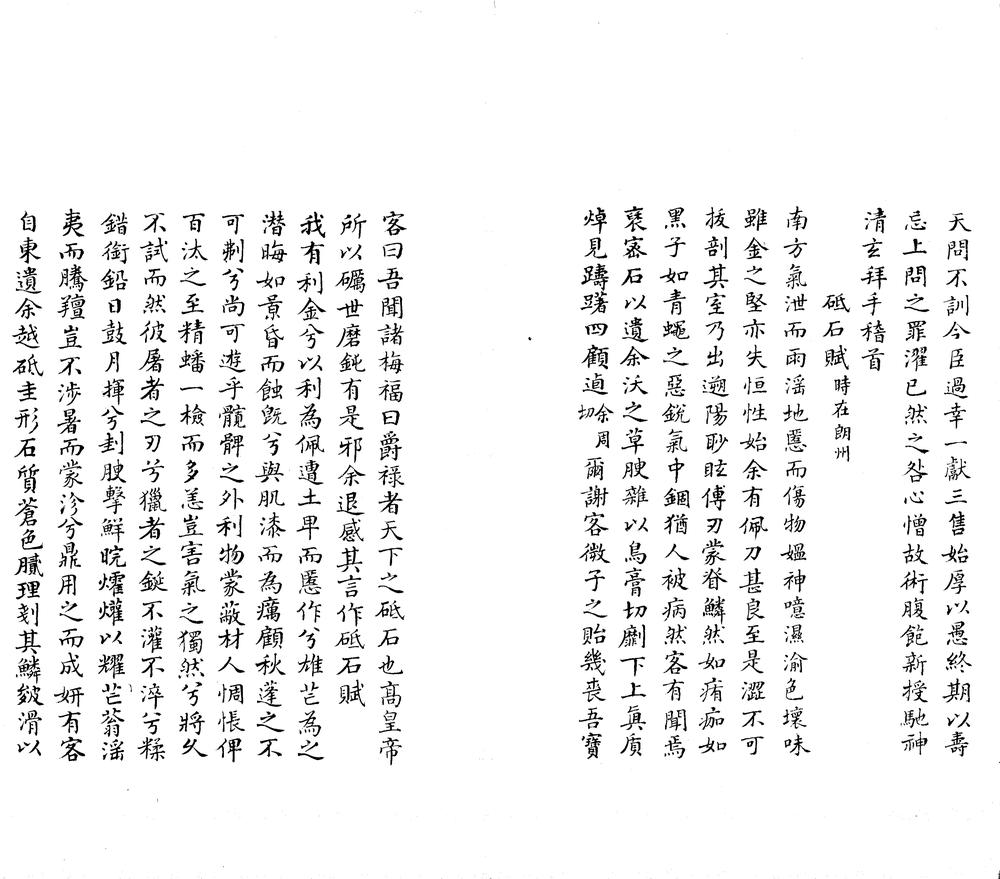 天問不訓今臣過幸一獻三售始厚以愚終期以壽
忌上問之罪濯已然之咎心憎故術腹飽新授馳神
清玄拜手稽首
砥石賦時在朗州
南方氣泄而雨淫地慝而傷物媼神噫濕渝色壞味
雖金之堅亦失恒性始余有佩刀甚良至是澀不可
拔剖其室乃出遡陽眇眩傅刃蒙脊鱗然如痏痂如
黑子如青蠅之惡銳氣中錮猶人被病然客有聞焉
裒密石以遺余沃之草腴雜以鳥膏切劘下上真質
焯見躊躇四顧逌余周切爾謝客微子之貽幾喪吾寶
客曰吾聞諸梅福曰爵祿者天下之砥石也高皇帝
所以礪世磨鈍有是邪余退感其言作砥石賦
我有利金兮以利為佩遭土卑而慝作兮雄芒為之
潛晦如景昏而蝕既兮與肌漆而為癘顧秋蓬之不
可剸兮尚可遊乎髖髀之外利物蒙蔽材人惆悵俾
百汰之至精蟠一檢而多恙豈害氣之獨然兮將久
不試而然彼屠者之刃兮獵者之鋋不灌不淬兮糅
錯銜鉛日鼓月揮兮刲腴擊鮮晥爠爠以耀芒蓊淫
夷而騰羶豈不涉暑而蒙沴兮鼎用之而成妍有客
自東遺余越砥圭形石質蒼色膩理剗其鱗皴滑以